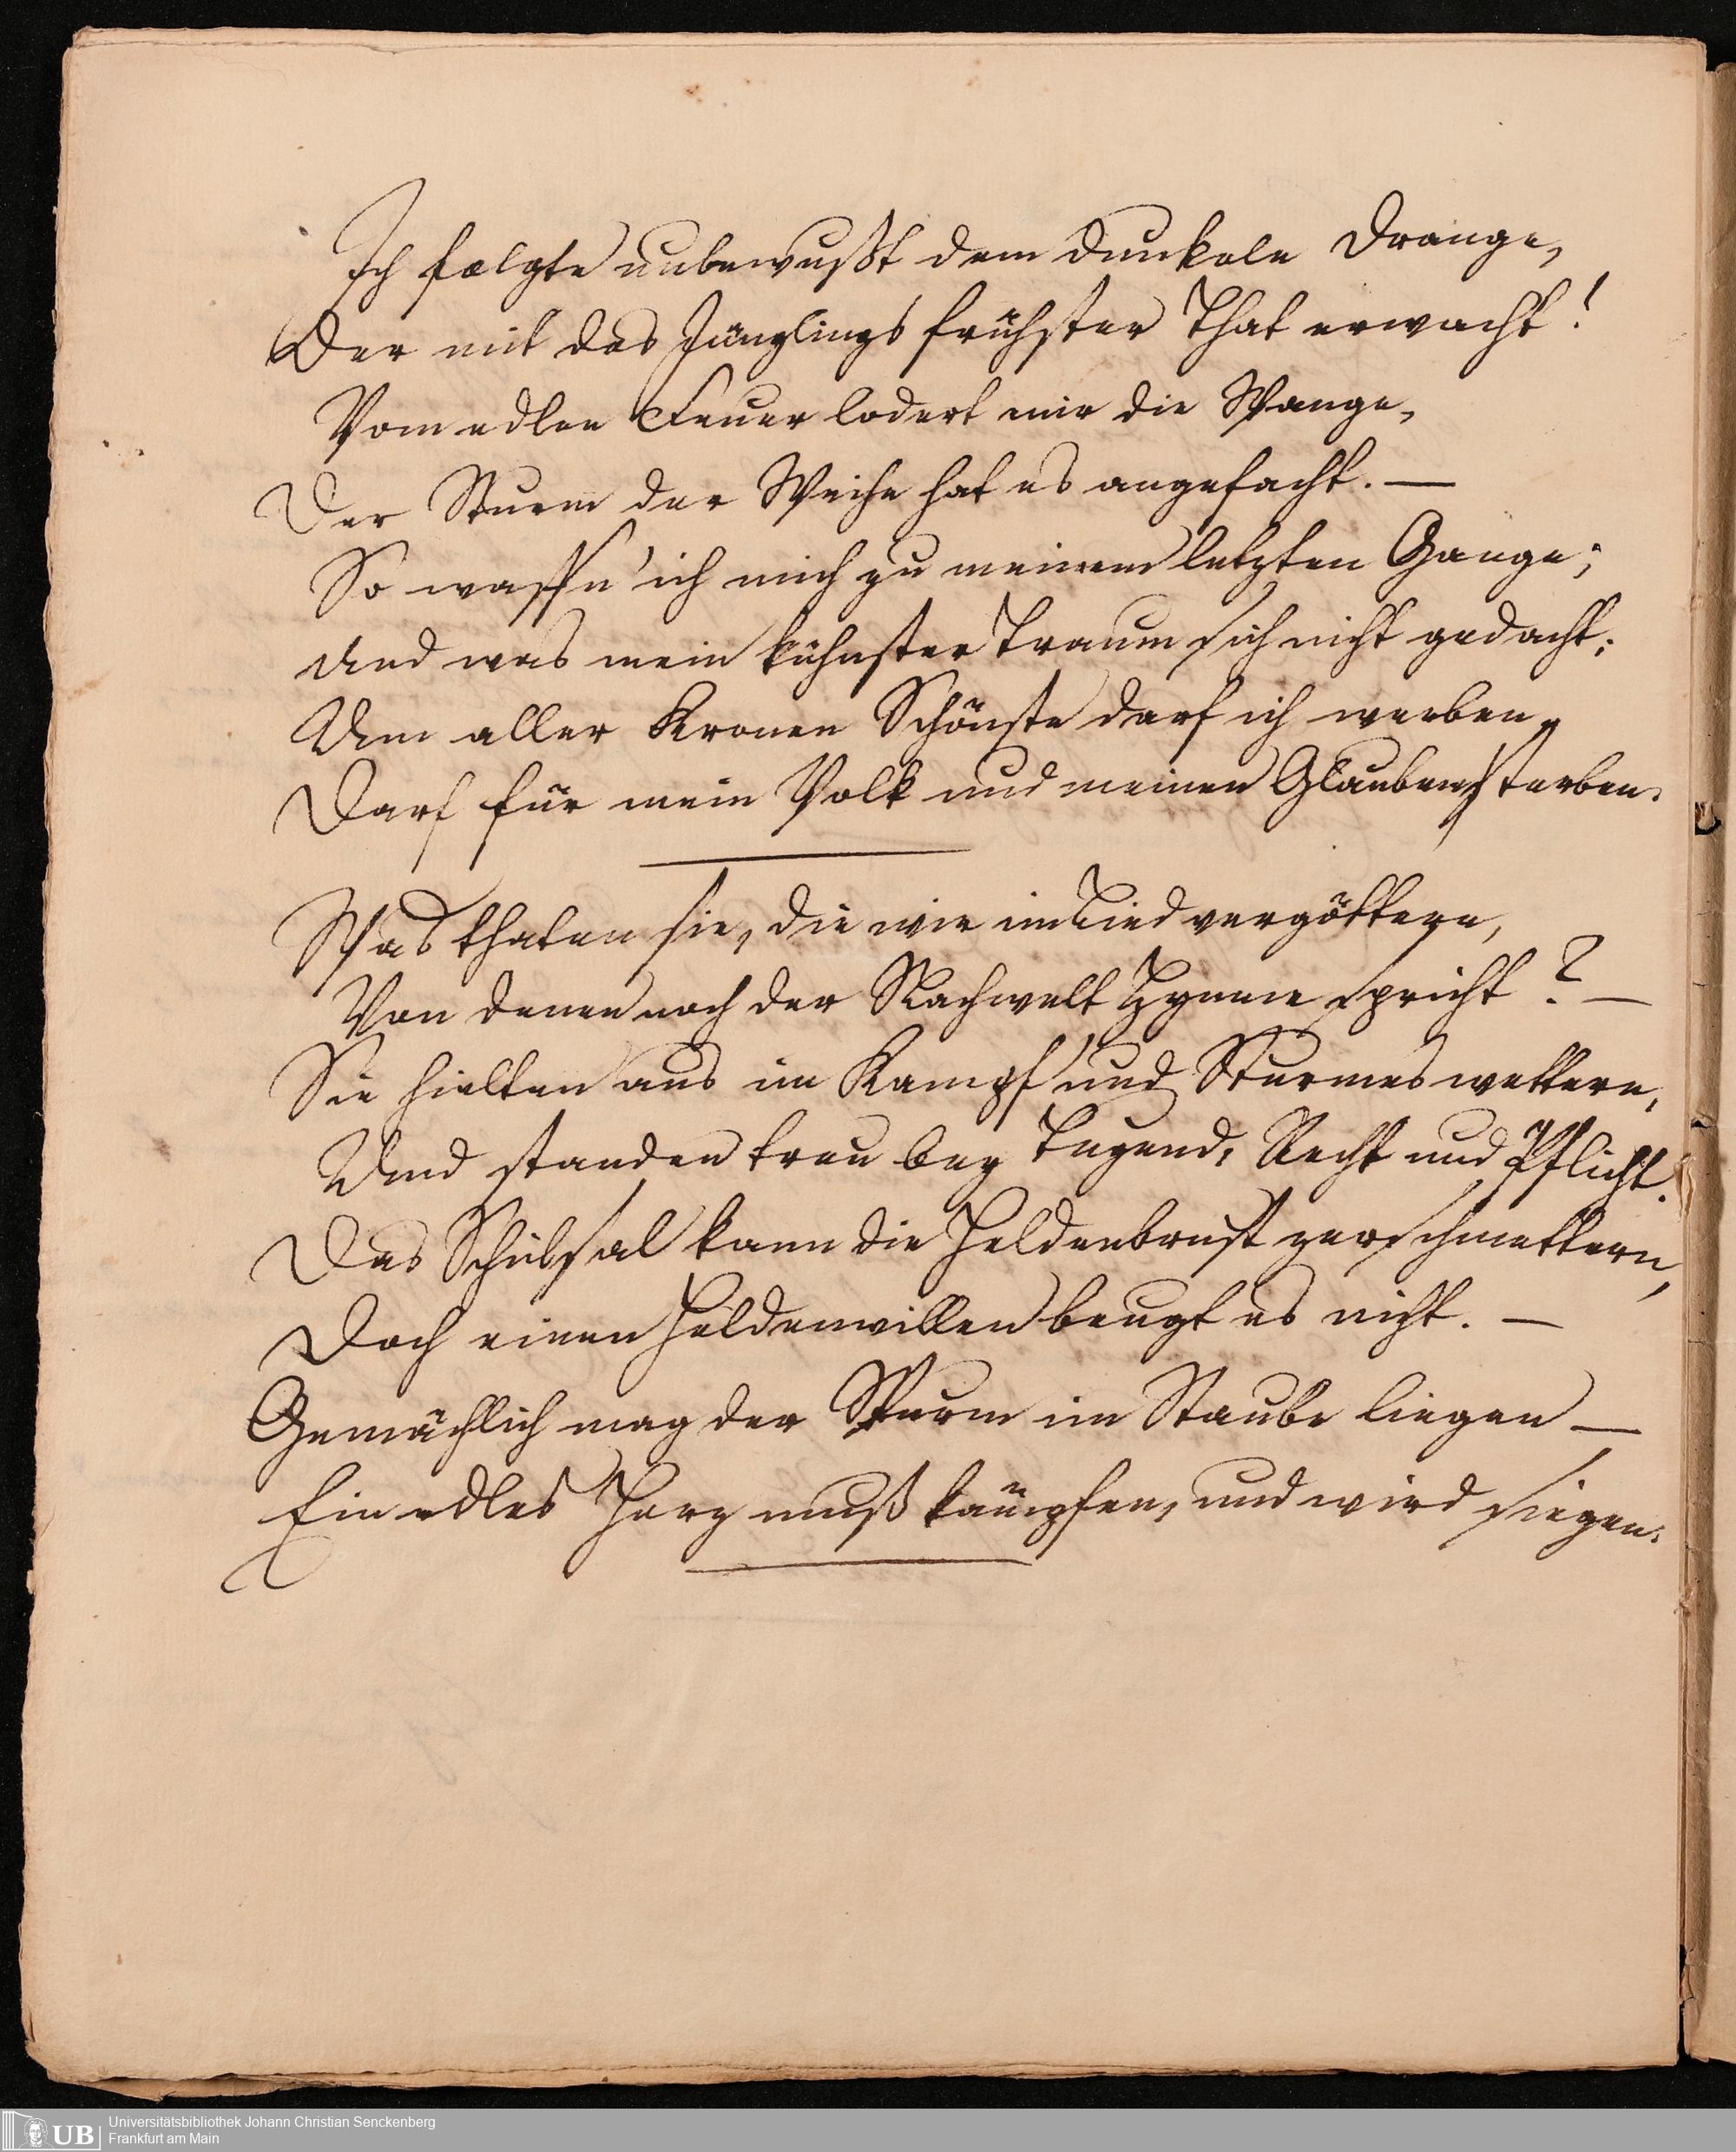 Ich folgte unbewußt dem dunkeln Drange,
Der mit des Jünglings frühster That erwacht!
Vom edlen Feuer lodert mir die Wange,
Der Sturm der Weihe hat es angefacht. —
So waffn' ich mich zu meinem letzten Gange;
Und was mein kühnster Traum sich nicht gedacht;
Um aller Kronen Schönste darf ich werben,
Darf für mein Volk und meinen Glauben sterben.
Was thaten sie, die wir im Lied vergöttern,
Von denen noch der Nachwelt Hymne spricht? —
Sie hielten aus im Kampf und Sturmes wettern,
Und standen treu bey Tugend, Recht und Pflicht.
Das Schicksal kann die Heldenbrust zerschmettern,
Doch einen Heldenwillen beugt es nicht. —
Gemächlich mag der Wurm im Staube liegen —
Ein edles Herz muß kämpfen, und wird siegen.
UB
Universitätsbibliothek Johann Christian Senckenberg
Frankfurt am Main